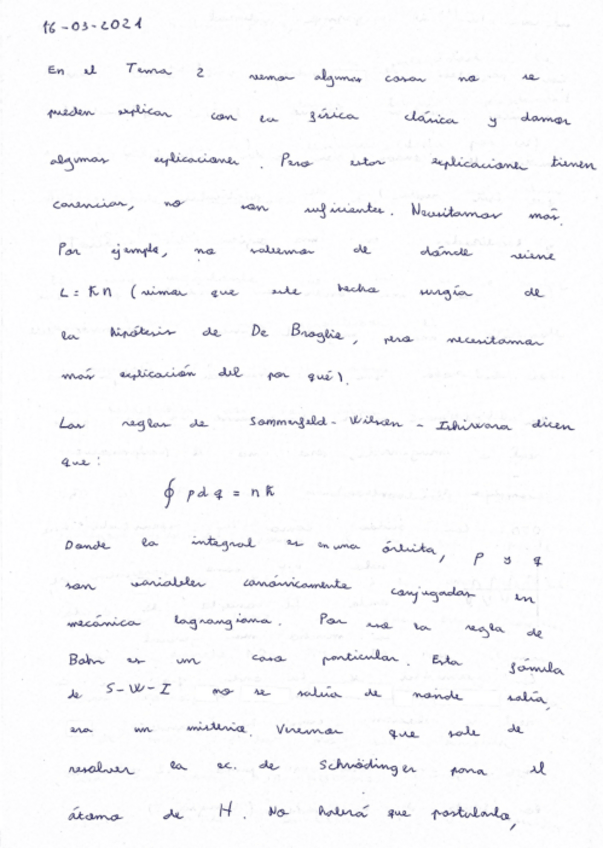 16-03-2021
En el Tema 2 vemos algunas cosas no se
pueden explicar con la física clásica y damos
algunas explicaciones. Pero estas explicaciones tienen
carencias, no son suficientes. Necesitamos más.
Por ejemplo, no sabemos de dónde viene
L = ℏn (vimos que este hecho surgía de
la hipótesis de De Broglie, pero necesitamos
más explicación del por qué).
Las reglas de Sommerfeld - Wilson - Ishiwara dicen
que:
∮ p d q = n ℏ
Donde la integral es en una órbita, p y q
son variables canónicamente conjugadas en
mecánica lagrangiana. Por eso la regla de
Bohr es un caso particular. Esta fórmula
de S-W-I no se sabía de dónde salía,
era un misterio. Veremos que sale de
resolver la ec. de Schrödinger para el
átomo de H. No habrá que postularla,